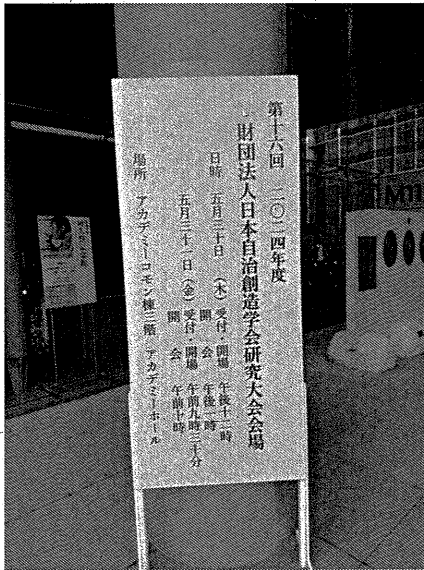 第十六回 二〇二四年度
財団法人日本自治創造学会研究大会会場
日時 五月三十日 (木) 受付・開場 午後十二時
開会 午後一時
五月三十一日 (金) 受付・開場 午前九時三十分
開会 午前十時
場所 アカデミーコモン棟三階 アカデミーホール